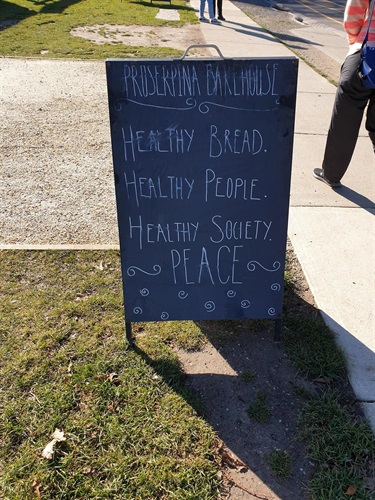 PROSERPINA BAKEHOUSE
HEALTHY BREAD.
HEALTHY PEOPLE.
HEALTHY SOCIETY.
PEACE